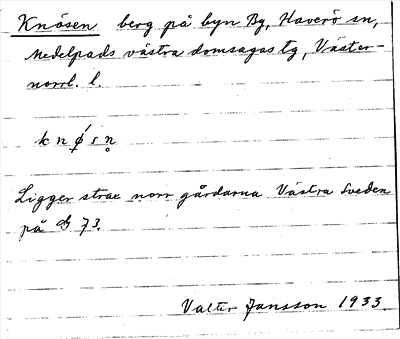 Knösen berg på byn By, Haverö sn,
Medelpads västra domsagas tg, Väster-
norrl. l.
k n ǿ s n̥
Ligger strax norr gårdarna Västra Sveden
på 73.
Valter Jansson 1933